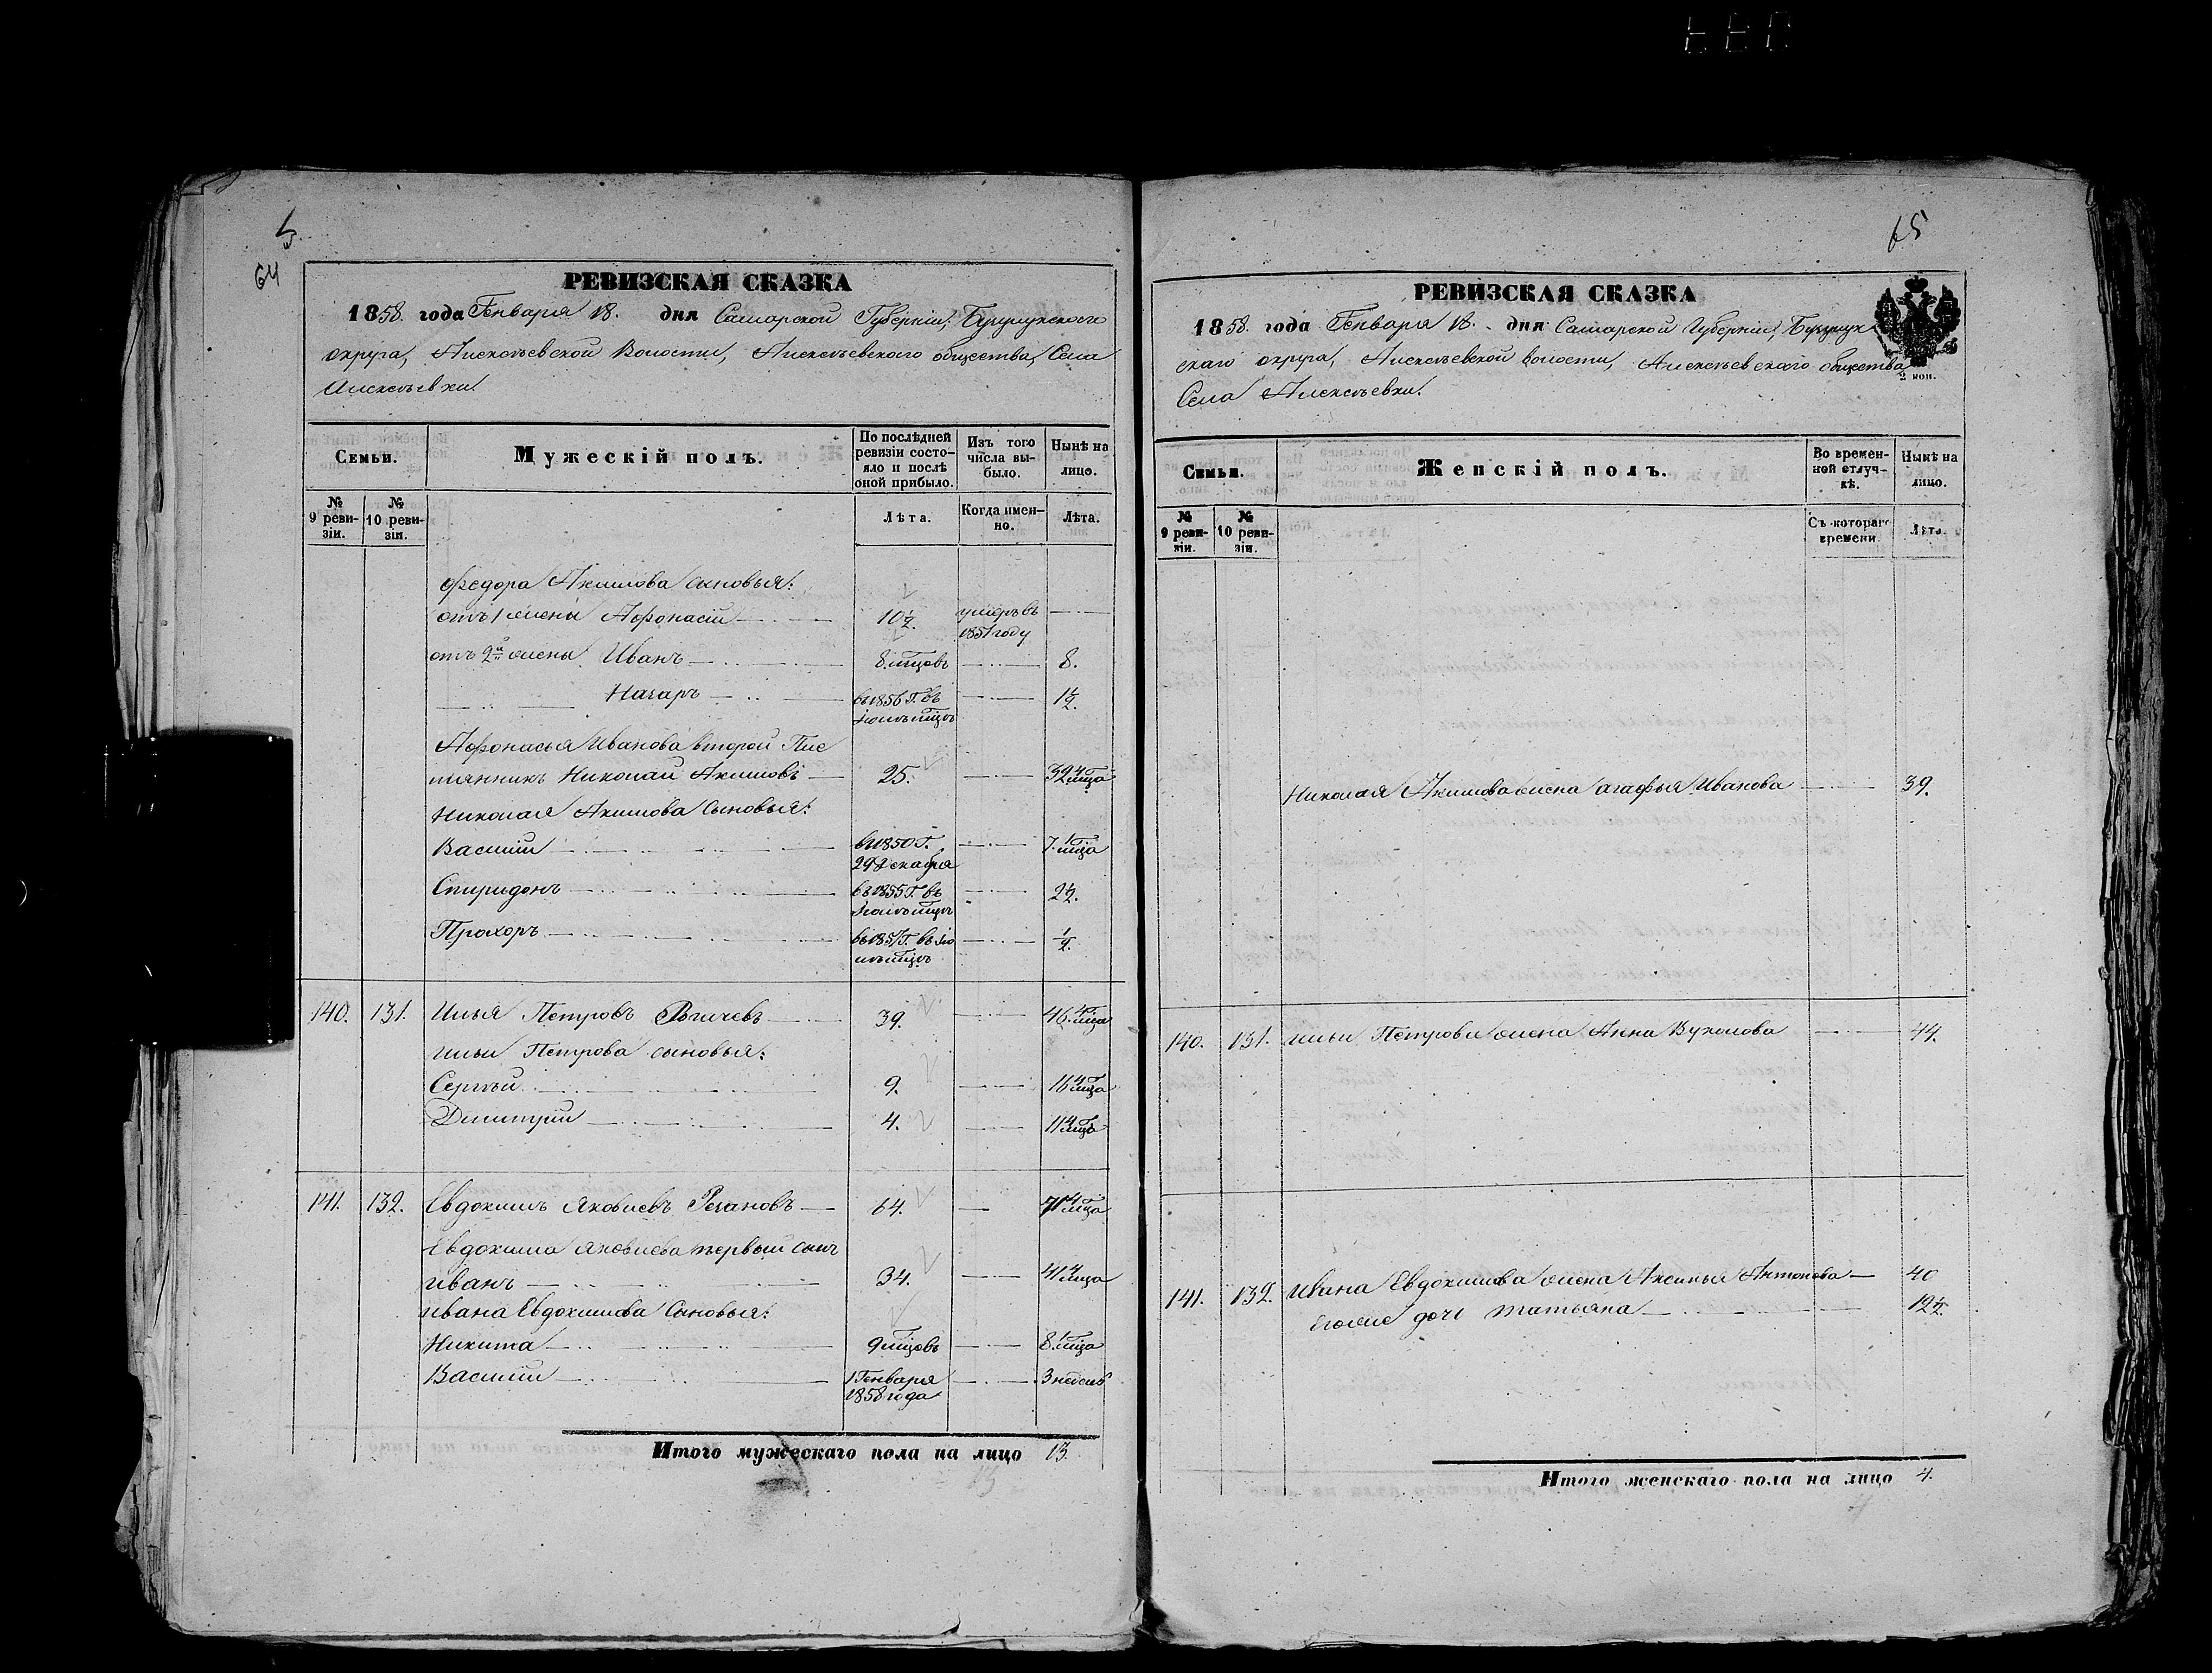 64
65
РЕВИЗСКАЯ СКАЗКА
1858. года Генваря 18. дня Самарской Губерніи, Бузулукскаго
округа, Алексѣевской Волости, Алексѣевскаго общества, Села
Алексѣевки
Семьи.
Мужескій полъ.
По послѣдней ревизіи состояло и послѣ оной прибыло.
Изъ того числа выбыло.
Нынѣ на лицо.
№ 9 ревизіи.
№ 10 ревизіи.
Лѣта.
Когда именно.
Лѣта.
Федора Акимова сыновья:
отъ 1 жены Афонасій 10½. умеръ въ 1851 году
отъ 2й жены Иванъ 8. мцовъ 8.
Назаръ въ 1856 Г. въ Іюлѣ мцѣ 1½.
Афонасья Иванова второй Пле
мянникъ Николай Акимовъ 25. 32 4 мца
Николая Акимова Сыновья:
Василій въ 1850 Г. 29 Декабря 7. 1 мца
Спиридонъ въ 1855 Г. въ Іюлѣ мцѣ 2½.
Прохоръ въ 1857 Г. въ Ію лѣ мцѣ ½.
140. 131. Илья Петровъ 39. 46. 4 мца
Ильи Петрова сыновья:
Сергѣй 9. 16 4 мца
Дмитрій 4. 11 4 мца
141. 132. Евдокимъ Яковлевъ Резановъ 64. 71 4 мца
Евдокима Яковлева первый сынъ
Иванъ 34. 41 4 мца
Ивана Евдокимова Сыновья:
Никита 9 мцовъ 8. 1 мца
Василій 1 Генваря 1858 года 3 недель
Итого мужескаго пола на лицо 13.
13
РЕВИЗСКАЯ СКАЗКА
1858. года Генваря 18. дня Самарской Губерніи, Бузулук
скаго округа, Алексѣевской волости, Алексѣевскаго общества
Села Алексѣевки.
2 коп.
Семьи.
Женскій полъ.
Во временной отлучкѣ.
Нынѣ на лицо.
№ 9 ревизіи.
№ 10 ревизіи.
Съ котораго времени.
Лѣта.
Николая Акимова жена Агафья Иванова 39.
140. 131. Ильи Петрова жена Анна Вуколова 44.
141. 132. Ивана Евдокимова жена Аксинья Антонова 40
его же дочь Татьяна 12½.
Итого женскаго пола на лицо 4.